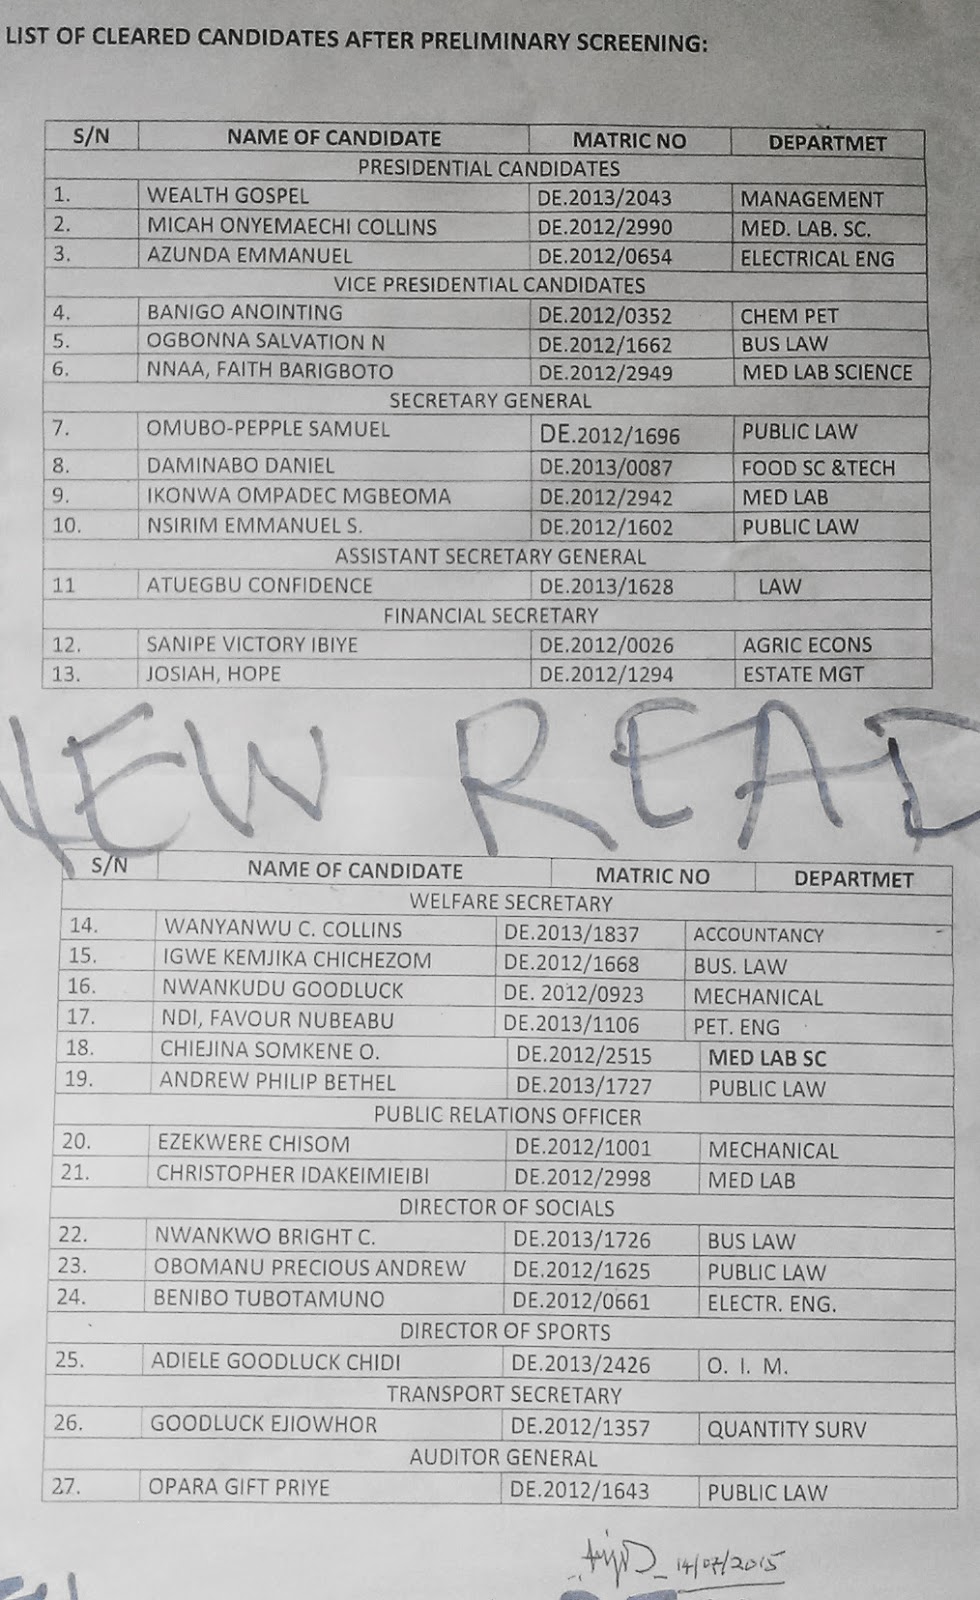 LIST OF CLEARED CANDIDATES AFTER PRELIMINARY SCREENING:
S/N NAME OF CANDIDATE MATRIC NO DEPARTMET
PRESIDENTIAL CANDIDATES
1. WEALTH GOSPEL DE.2013/2043 MANAGEMENT
2. MICAH ONYEMAECHI COLLINS DE.2012/2990 MED. LAB. SC.
3. AZUNDA EMMANUEL DE.2012/0654 ELECTRICAL ENG
VICE PRESIDENTIAL CANDIDATES
4. BANIGO ANOINTING DE.2012/0352 CHEM PET
5. OGBONNA SALVATION N DE.2012/1662 BUS LAW
6. NNAA, FAITH BARIGBOTO DE.2012/2949 MED LAB SCIENCE
SECRETARY GENERAL
7. OMUBO-PEPPLE SAMUEL DE.2012/1696 PUBLIC LAW
8. DAMINABO DANIEL DE.2013/0087 FOOD SC &TECH
9. IKONWA OMPADEC MGBEOMA DE.2012/2942 MED LAB
10. NSIRIM EMMANUEL S. DE.2012/1602 PUBLIC LAW
ASSISTANT SECRETARY GENERAL
11 ATUEGBU CONFIDENCE DE.2013/1628 LAW
FINANCIAL SECRETARY
12. SANIPE VICTORY IBIYE DE.2012/0026 AGRIC ECONS
13. JOSIAH, HOPE DE.2012/1294 ESTATE MGT
NEW READ
S/N NAME OF CANDIDATE MATRIC NO DEPARTMET
WELFARE SECRETARY
14. WANYANWU C. COLLINS DE.2013/1837 ACCOUNTANCY
15. IGWE KEMJIKA CHICHEZOM DE.2012/1668 BUS. LAW
16. NWANKUDU GOODLUCK DE. 2012/0923 MECHANICAL
17. NDI, FAVOUR NUBEABU DE.2013/1106 PET. ENG
18. CHIEJINA SOMKENE O. DE.2012/2515 MED LAB SC
19. ANDREW PHILIP BETHEL DE.2013/1727 PUBLIC LAW
PUBLIC RELATIONS OFFICER
20. EZEKWERE CHISOM DE.2012/1001 MECHANICAL
21. CHRISTOPHER IDAKEIMIEIBI DE.2012/2998 MED LAB
DIRECTOR OF SOCIALS
22. NWANKWO BRIGHT C. DE.2013/1726 BUS LAW
23. OBOMANU PRECIOUS ANDREW DE.2012/1625 PUBLIC LAW
24. BENIBO TUBOTAMUNO DE.2012/0661 ELECTR. ENG.
DIRECTOR OF SPORTS
25. ADIELE GOODLUCK CHIDI DE.2013/2426 O. I. M.
TRANSPORT SECRETARY
26. GOODLUCK EJIOWHOR DE.2012/1357 QUANTITY SURV
AUDITOR GENERAL
27. OPARA GIFT PRIYE DE.2012/1643 PUBLIC LAW
14/07/2015